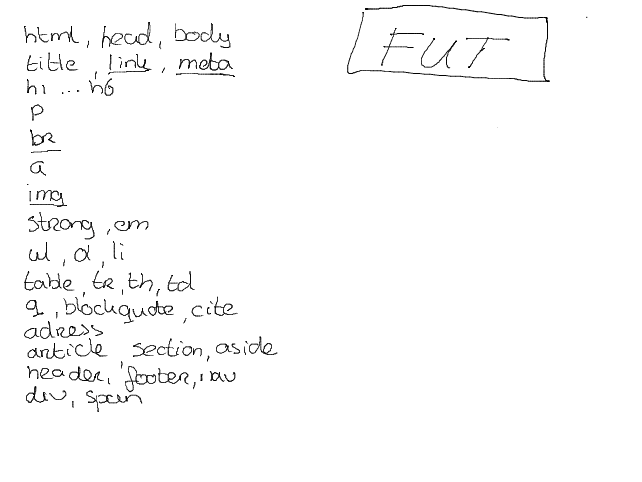 html, head, body
title, link, meta
h1 ... h6
p
br
a
img
strong, em
ul, ol, li
table, tr, th, td
q, blockquote, cite
adress
article, section, aside
header, footer, nav
div, span
FUT